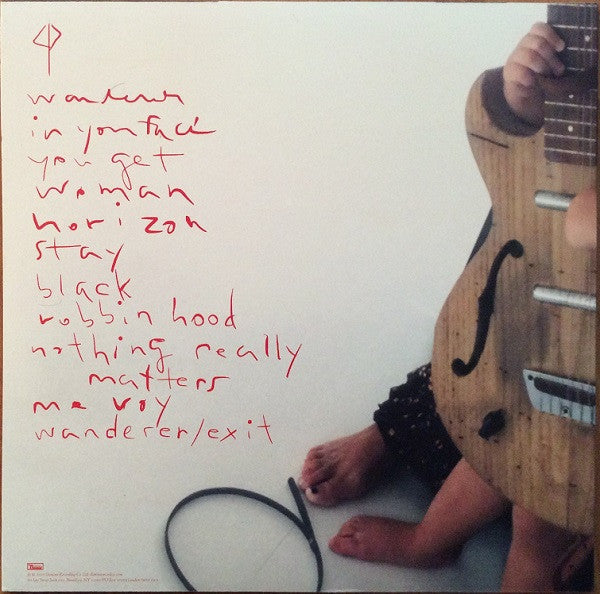 CP
wanderer
in your face
you get
woman
horizon
stay
black
robbin hood
nothing really
matters
me voy
wanderer/exit
Domino